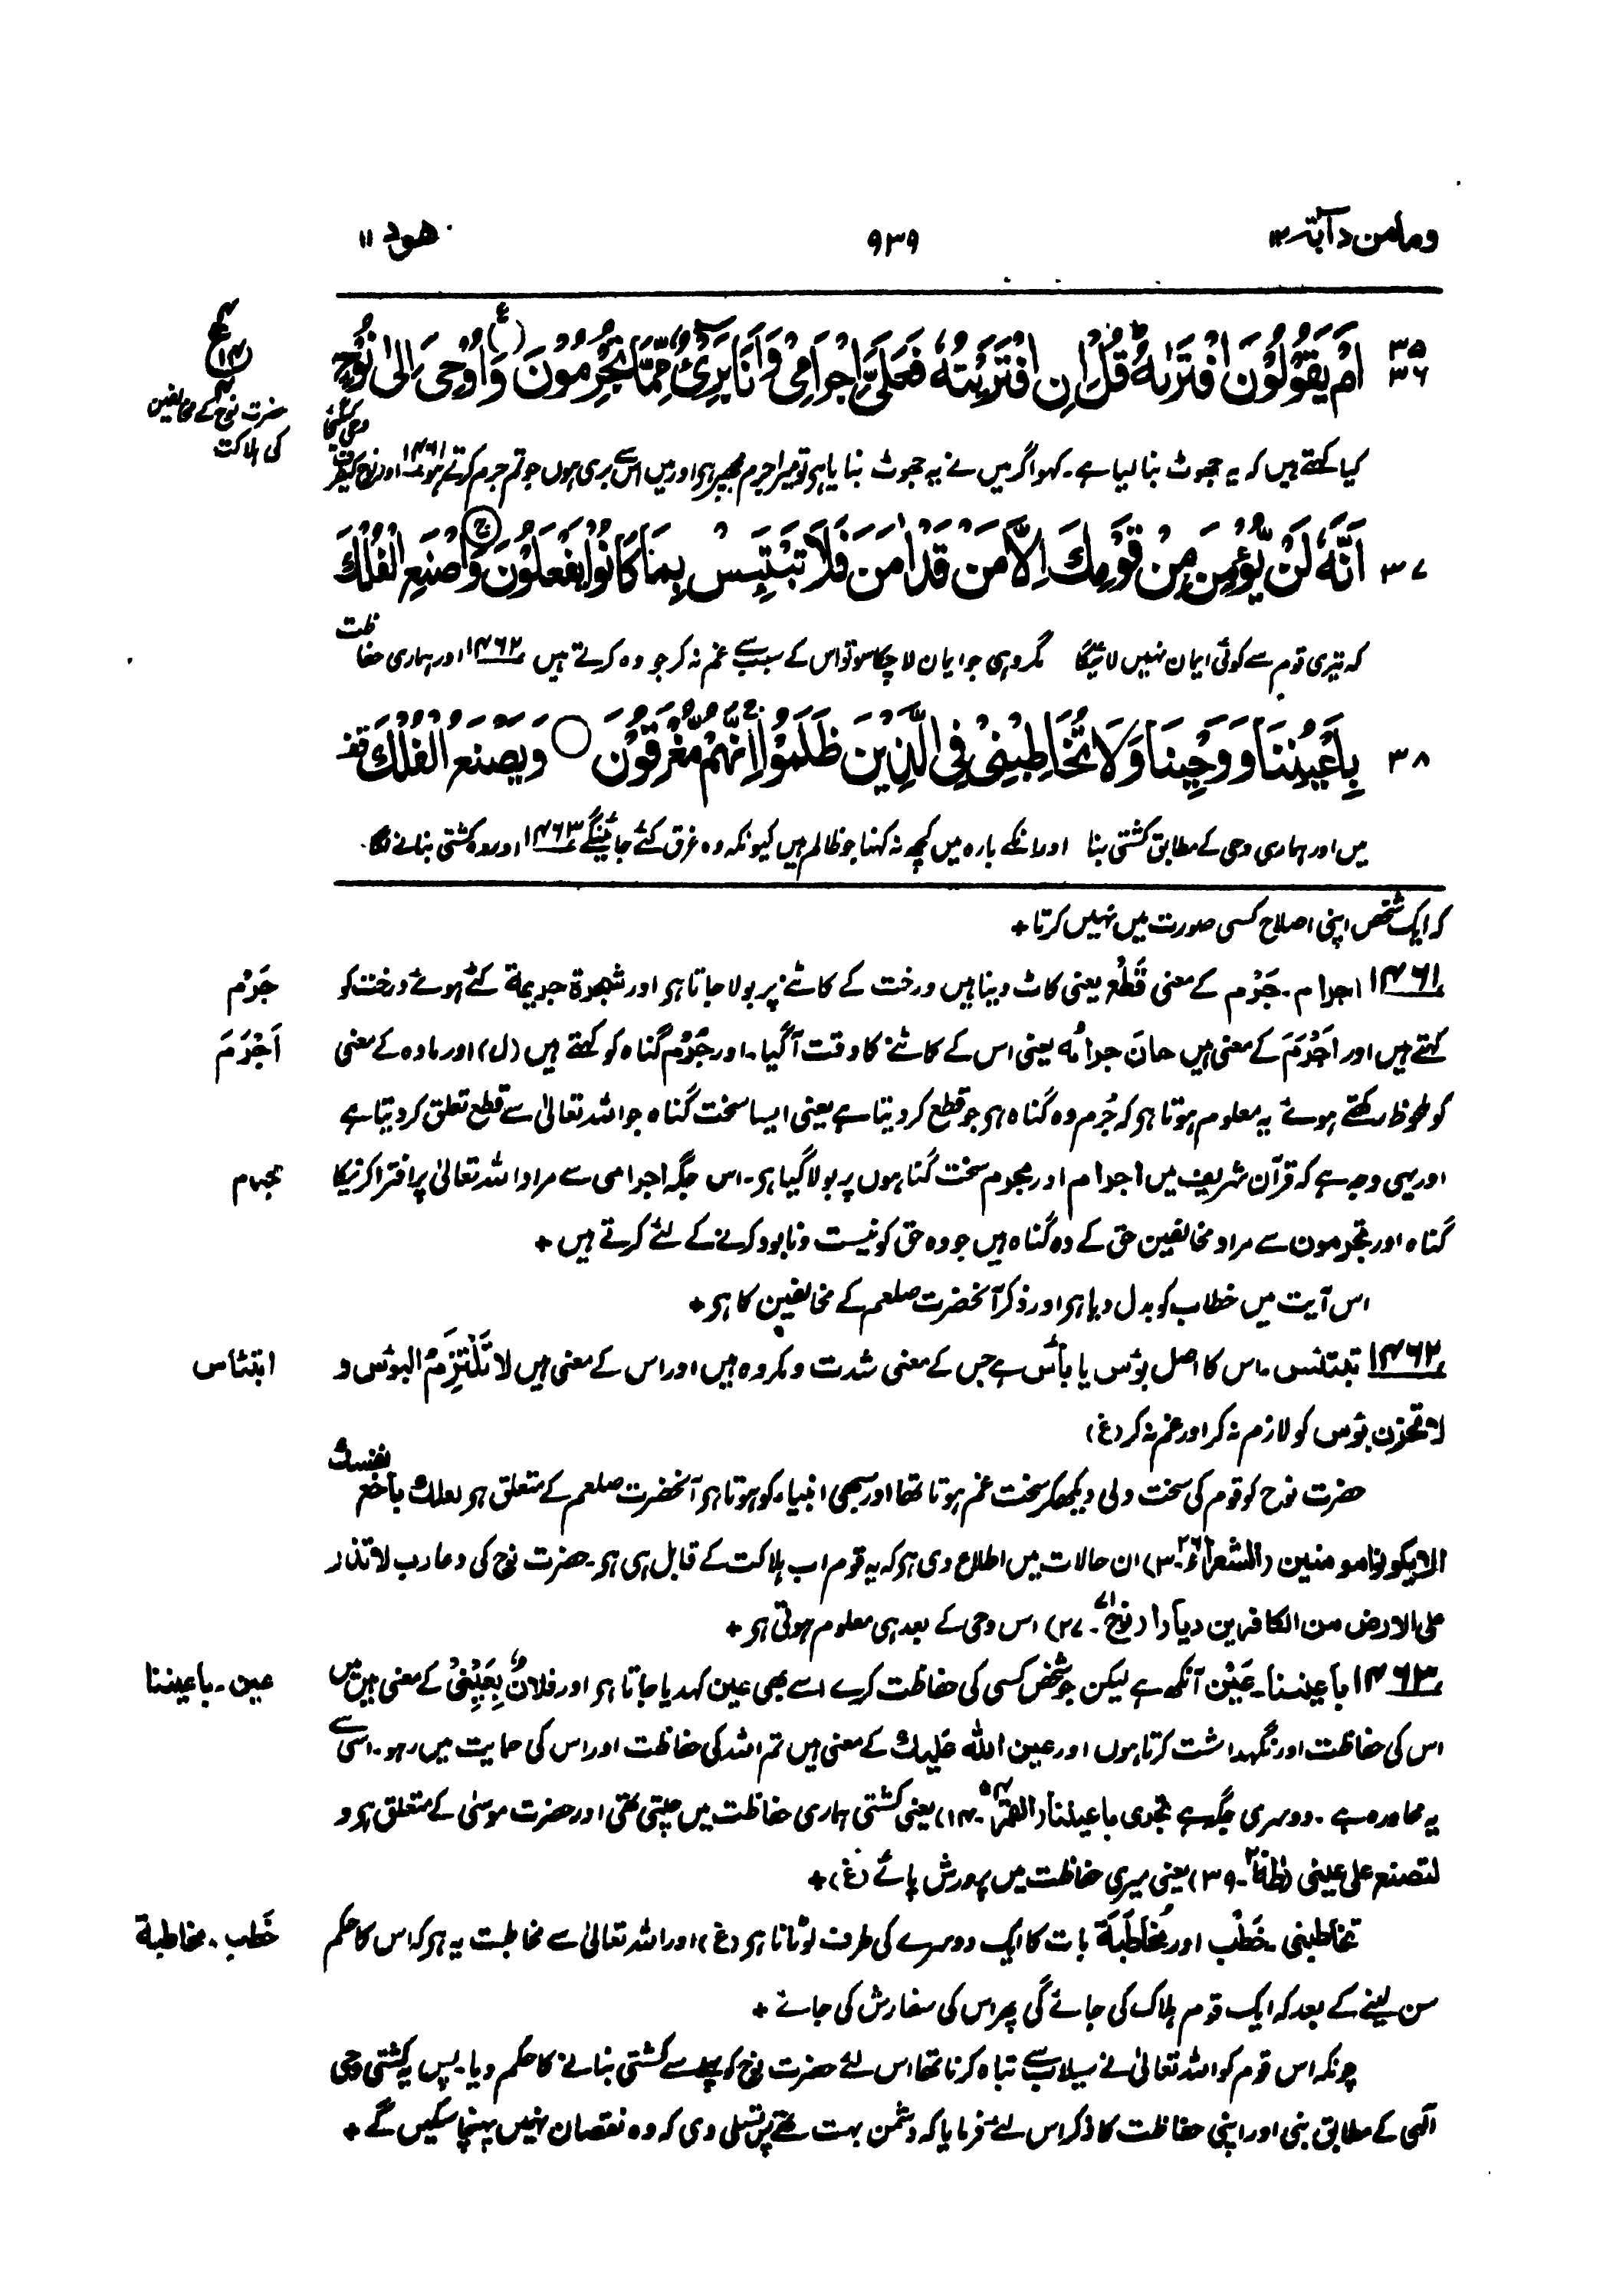 ومامن دآبۃ ۱۲ ۹۳۹ ھود ۱۱
۳۵ ۳۶ اَمْ يَقُوْلُوْنَ افْتَرٰىهُ ؕ قُلْ اِنِ افْتَرَيْتُهٗ فَعَلَيَّ اِجْرَامِيْ وَاَنَا بَرِيْٓءٌ مِّمَّا تُجْرِمُوْنَ (ع) وَاُوْحِيَ اِلٰى نُوْحٍ
ع ۴ ۱۴ ۴
حضرت نوح کے مخالفین
کی ہلاکت
کیا کہتے ہیں کہ یہ جھوٹ بنا لیا ہے۔ کہو اگر میں نے یہ جھوٹ بنایا ہو تو میرا جرم مجھپر ہو اور میں اس سے بری ہوں جو تم جرم کرتے ہو ۱۴۶۱ اور نوح کیطرف وحی کی گئی
۳۷ اَنَّهٗ لَنْ يُّؤْمِنَ مِنْ قَوْمِكَ اِلَّا مَنْ قَدْ اٰمَنَ فَلَا تَبْتَىِٕسْ بِمَا كَانُوْا يَفْعَلُوْنَ وَاصْنَعِ الْفُلْكَ
کہ تیری قوم سے کوئی ایمان نہیں لائیگا مگر وہی جو ایمان لا چکا سو تو اس کے سبب سے غم نہ کر جو وہ کرتے ہیں ۱۴۶۲ اور ہماری حفاظت
۳۸ بِاَعْيُنِنَا وَوَحْيِنَا وَلَا تُخَاطِبْنِيْ فِي الَّذِيْنَ ظَلَمُوْا اِنَّهُمْ مُّغْرَقُوْنَ ○ وَيَصْنَعُ الْفُلْكَ قف
میں اور ہماری وحی کے مطابق کشتی بنا اور انکے بارہ میں کچھ نہ کہنا جو ظالم ہیں کیونکہ وہ غرق کئے جائینگے ۱۴۶۳ اور وہ کشتی بنانے لگا۔
کہ ایک شخص اپنی اصلاح کسی صورت میں نہیں کرتا +
۱۴۶۱ اجرام۔ جَرْم کے معنی قَطْع یعنی کاٹ دینا ہیں درخت کے کاٹنے پر بولا جاتا ہو اور شجرة جریمة کٹے ہوئے درخت کو جَرْم
کہتے ہیں اور اَجْرَمَ کے معنی ہیں حانَ جرامُه یعنی اس کے کاٹنے کا وقت آگیا۔ اور جُرْم گناہ کو کہتے ہیں (ل) اور مادہ کے معنی اَجْرَمَ
کو ملحوظ رکھتے ہوئے یہ معلوم ہوتا ہو کہ جُرم وہ گناہ ہو جو قطع کر دیتا ہے یعنی ایسا سخت گناہ جو اللہ تعالیٰ سے قطع تعلق کر دیتا ہے
اور یہی وجہ ہے کہ قرآن شریف میں اجرام اور مجرم سخت گناہوں پر بولا گیا ہو۔ اس جگہ اجرامی سے مراد اللہ تعالیٰ پر افترا کرنیکا مجرم
گناہ اور تجرمون سے مراد مخالفین حق کے وہ گناہ ہیں جو وہ حق کو نیست و نابود کرنے کے لئے کرتے ہیں +
اس آیت میں خطاب کو بدل دیا ہو اور ذکر آنحضرت صلعم کے مخالفین کا ہو +
۱۴۶۲ تبتئس۔ اس کا اصل بؤس یا بأس ہے جس کے معنی شدت و مکروہ ہیں اور اس کے معنی ہیں لا تَلْتَزِمُ البؤس و ابتئاس
لا تحزن بؤس کو لازم نہ کر اور غم نہ کر (غ)
حضرت نوح کو قوم کی سخت دلی دیکھکر سخت غم ہوتا تھا اور سبھی انبیاء کو ہوتا ہو آنحضرت صلعم کے متعلق ہو لعلك باخع نفسك
الا یکونوا مومنین (الشعراء ۲۶۔۳) ان حالات میں اطلاع دی ہو کہ یہ قوم اب ہلاکت کے قابل ہی ہو۔ حضرت نوح کی دعا رب لا تذر
علی الارض من الکافرین دیارا (نوح ۷۱۔۲۷) اس وحی کے بعد ہی معلوم ہوتی ہو +
۱۴۶۳ باعیننا۔ عَیْن آنکھ ہے لیکن جو شخص کسی کی حفاظت کرے اسے بھی عین کہدیا جاتا ہو اور فلانٌ بِعَیْنِیْ کے معنی ہیں میں عین۔ باعیننا
اس کی حفاظت اور نگہداشت کرتا ہوں اور عین اللہ علیك کے معنی ہیں تم اللہ کی حفاظت اور اس کی حمایت میں رہو۔ اسی سے
یہ محاورہ ہے۔ دوسری جگہ ہے تجری باعیننا (القمر ۵۴۔۱۴) یعنی کشتی ہماری حفاظت میں چلتی تھی اور حضرت موسیٰ کے متعلق ہو و
لتصنع علی عینی (طٰہٰ ۲۰۔۳۹) یعنی میری حفاظت میں پرورش پائے (غ) +
تخاطبنی۔ خَطْب اور مُخَاطَبَة بات کا ایک دوسرے کی طرف لوٹانا ہو (غ) اور اللہ تعالیٰ سے مخاطبت یہ ہو کہ اس کا حکم خَطب۔ مخاطبة
سن لینے کے بعد کہ ایک قوم ہلاک کی جائے گی پھر اس کی سفارش کی جائے +
چونکہ اس قوم کو اللہ تعالیٰ نے سیلاب سے تباہ کرنا تھا اس لئے حضرت نوح کو پہلے سے کشتی بنانے کا حکم دیا۔ پس یہ کشتی وحی
الٰہی کے مطابق بنی اور اپنی حفاظت کا ذکر اس لئے فرمایا کہ دشمن بہت تھے پس تسلی دی کہ وہ نقصان نہیں پہنچا سکیں گے +